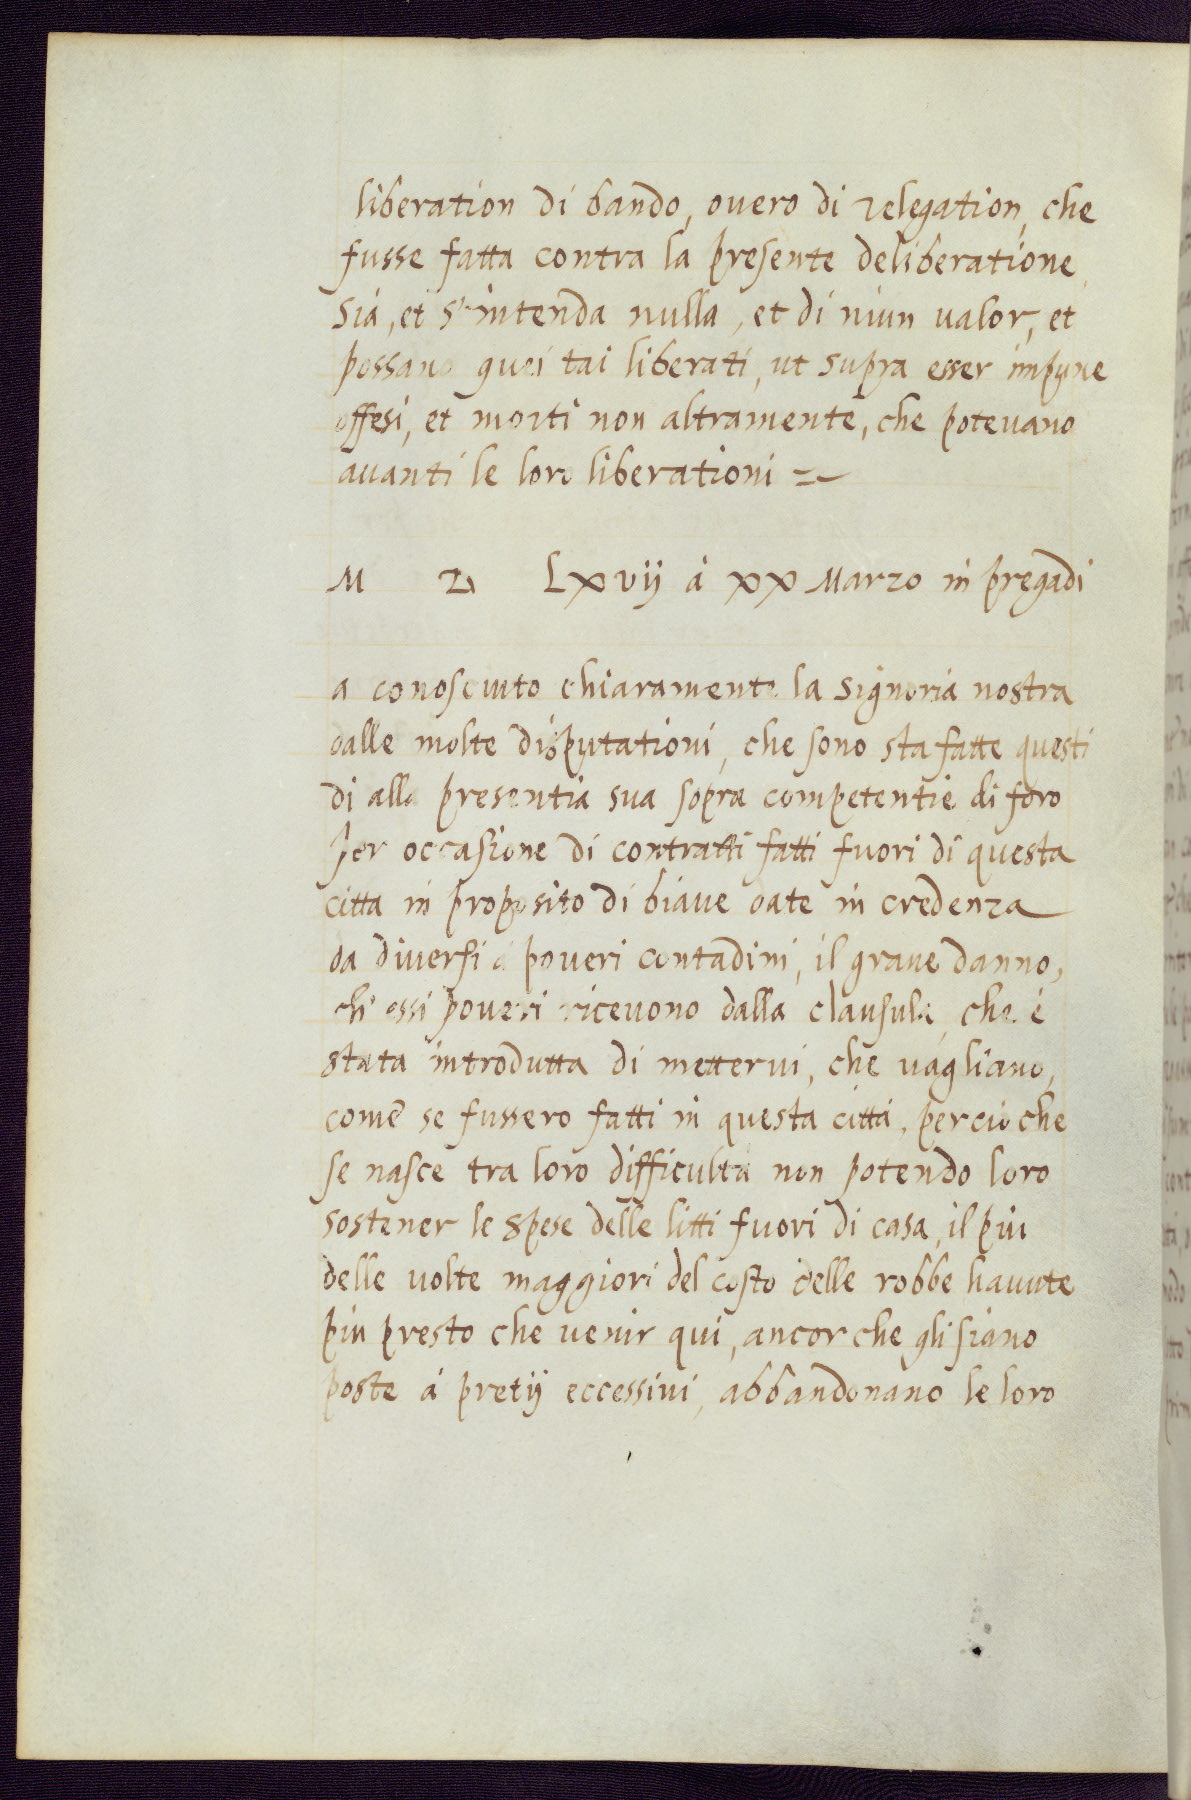 liberation di bando, ouero di relegation, che
fusse fatta contra la presente deliberatione,
sia, et s'intenda nulla, et di niun valor, et
possano quei tai liberati, ut supra esser impune
offesi, et morti non altramente, che poteuano
auanti le loro liberationi
M D Lxvij à xx Marzo in pregadi
a conosciuto chiaramente la Signoria nostra
dalle molte disputationi, che sono sta fatte questi
di alla presentia sua sopra competentie di foro
per occasione di contratti fatti fuori di questa
citta in proposito di biaue date in credenza
da diuersi à poueri contadini, il graue danno,
ch' essi poueri riceuono dalla clausula, che è
stata introdutta di metterui, che uagliano,
come se fussero fatti in questa città, percioche
se nasce tra loro difficultà non potendo loro
sostener le spese delle litti fuori di casa, il piu
delle uolte maggiori del costo delle robbe hauute
piu presto che uenir qui, ancor che gli siano
poste à pretij eccessiui, abbandonano le loro